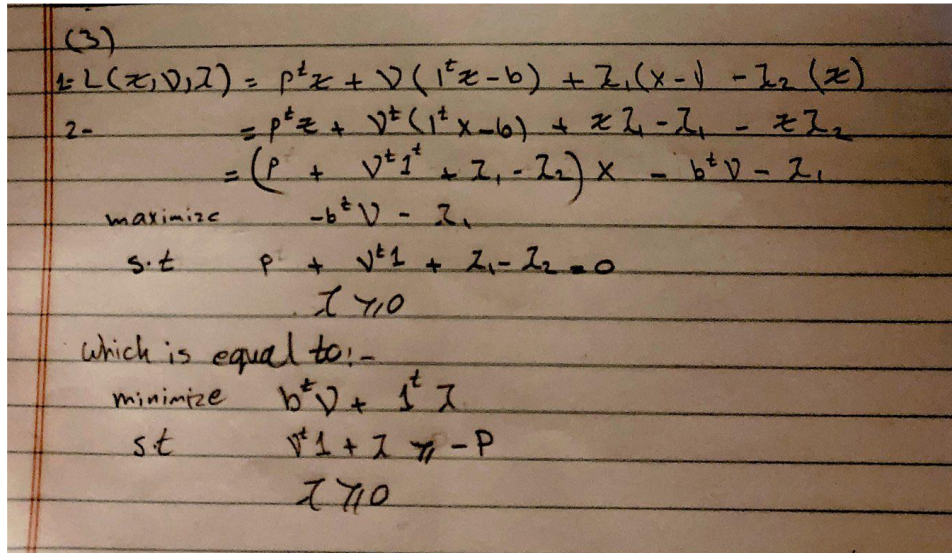 (3)
1- L(x, ν, λ) = pᵗx + ν(1ᵗx - b) + λ₁(x - 1) - λ₂(x)
2- = pᵗx + νᵗ(1ᵗx - b) + xλ₁ - λ₁ - xλ₂
= (p + νᵗ1ᵗ + λ₁ - λ₂)x - bᵗν - λ₁
maximize -bᵗν - λ₁
s.t p + νᵗ1 + λ₁ - λ₂ = 0
λ ≥ 0
which is equal to:-
minimize bᵗν + 1ᵗλ
s.t νᵗ1 + λ ≥ -P
λ ≥ 0